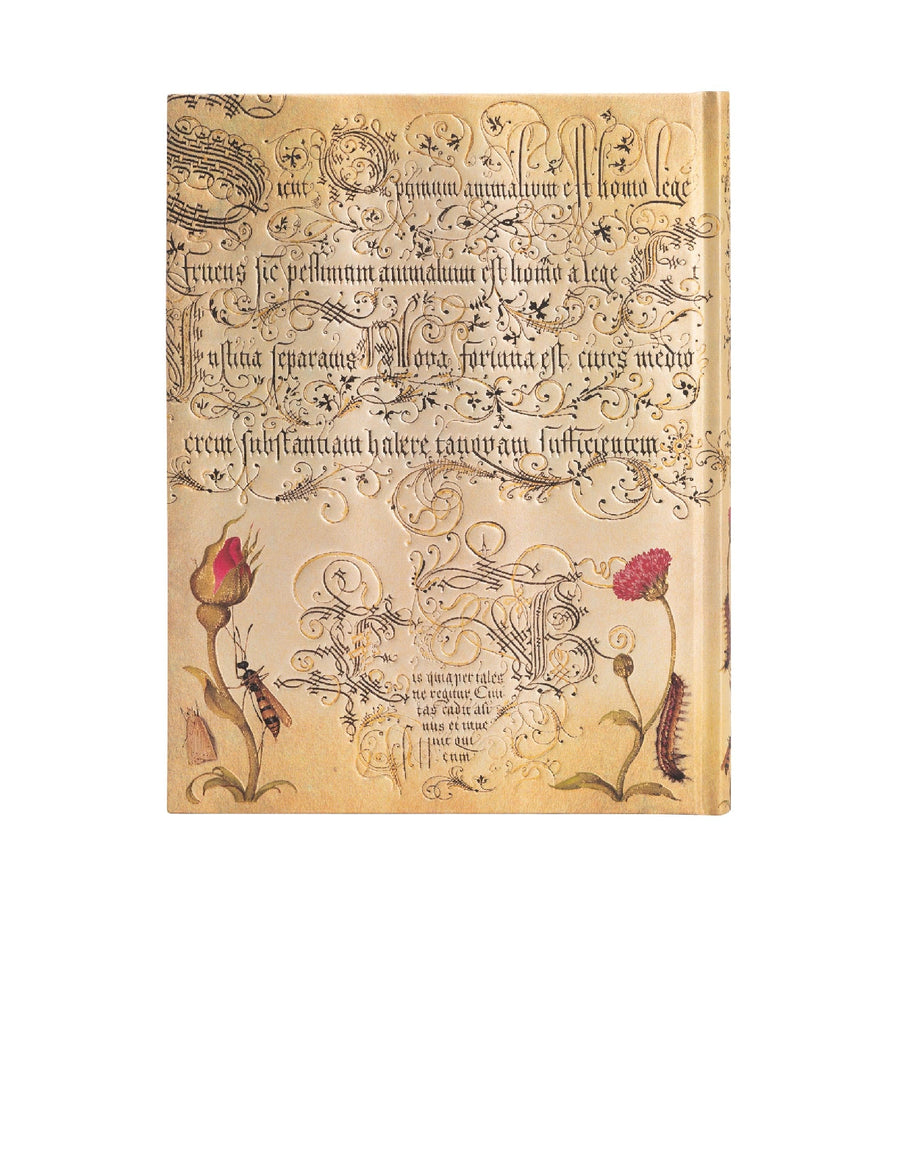 Sicut Optimum animalium est homo lege
fruens sic pessimum animalium est homo a lege Et
Iustitia separatus Nova fortuna est cives medio
crem substantiam habere tanquam sufficientem
is quia per tales
ne regitur Civi
tas cadit ali
nus et
cum